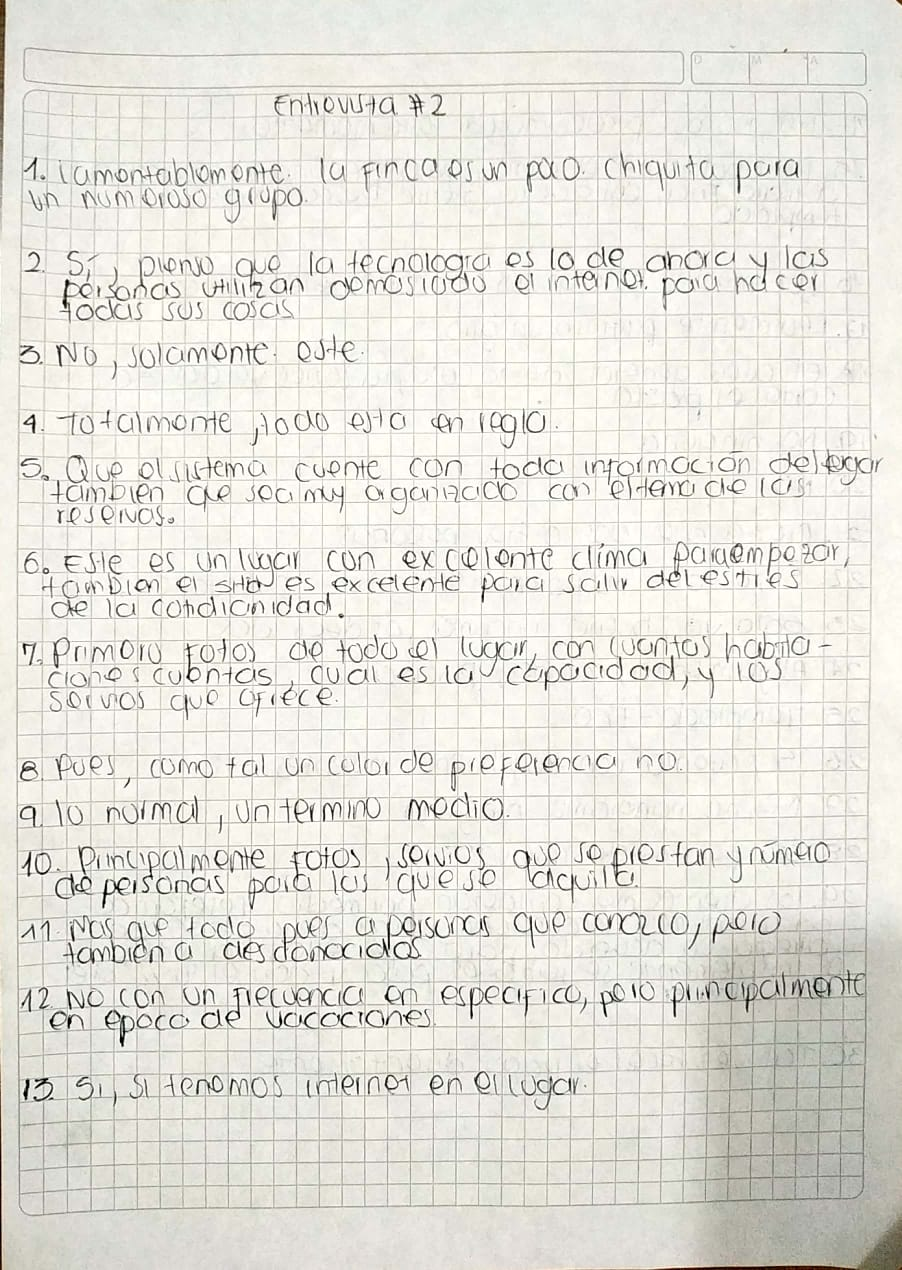 Entrevista #2
1. lamentablemente. la finca es un poco. chiquita para
un numeroso grupo.
2. Si, pienso que la tecnologia es lo de ahora y las
personas utilizan demasiado el internet. para hacer
todas sus cosas
3. No, solamente. este.
4. Totalmente, todo esta en regla.
5. Que el sistema cuente con toda información del lugar
tambien que sea muy organizado con el tema de las
reservas.
6. Este es un lugar con excelente clima para empezar,
tambien el sitio es excelente para salir del estres
de la cotidianidad.
7. Primero fotos de todo el lugar, con cuantas habita-
ciones cuentas, cual es la capacidad, y los
servios que ofrece.
8. Pues, como tal un color de preferencia no.
9. lo normal, un termino medio.
10. Principalmente fotos, servios que se prestan y número
de personas para las que se alquila.
11. Mas que todo pues a personas que conozco, pero
tambien a desconocidos
12. No con un frecuencia en especifico, pero principalmente
en epoca de vacaciones.
13. Si, si tenemos internet en el lugar.